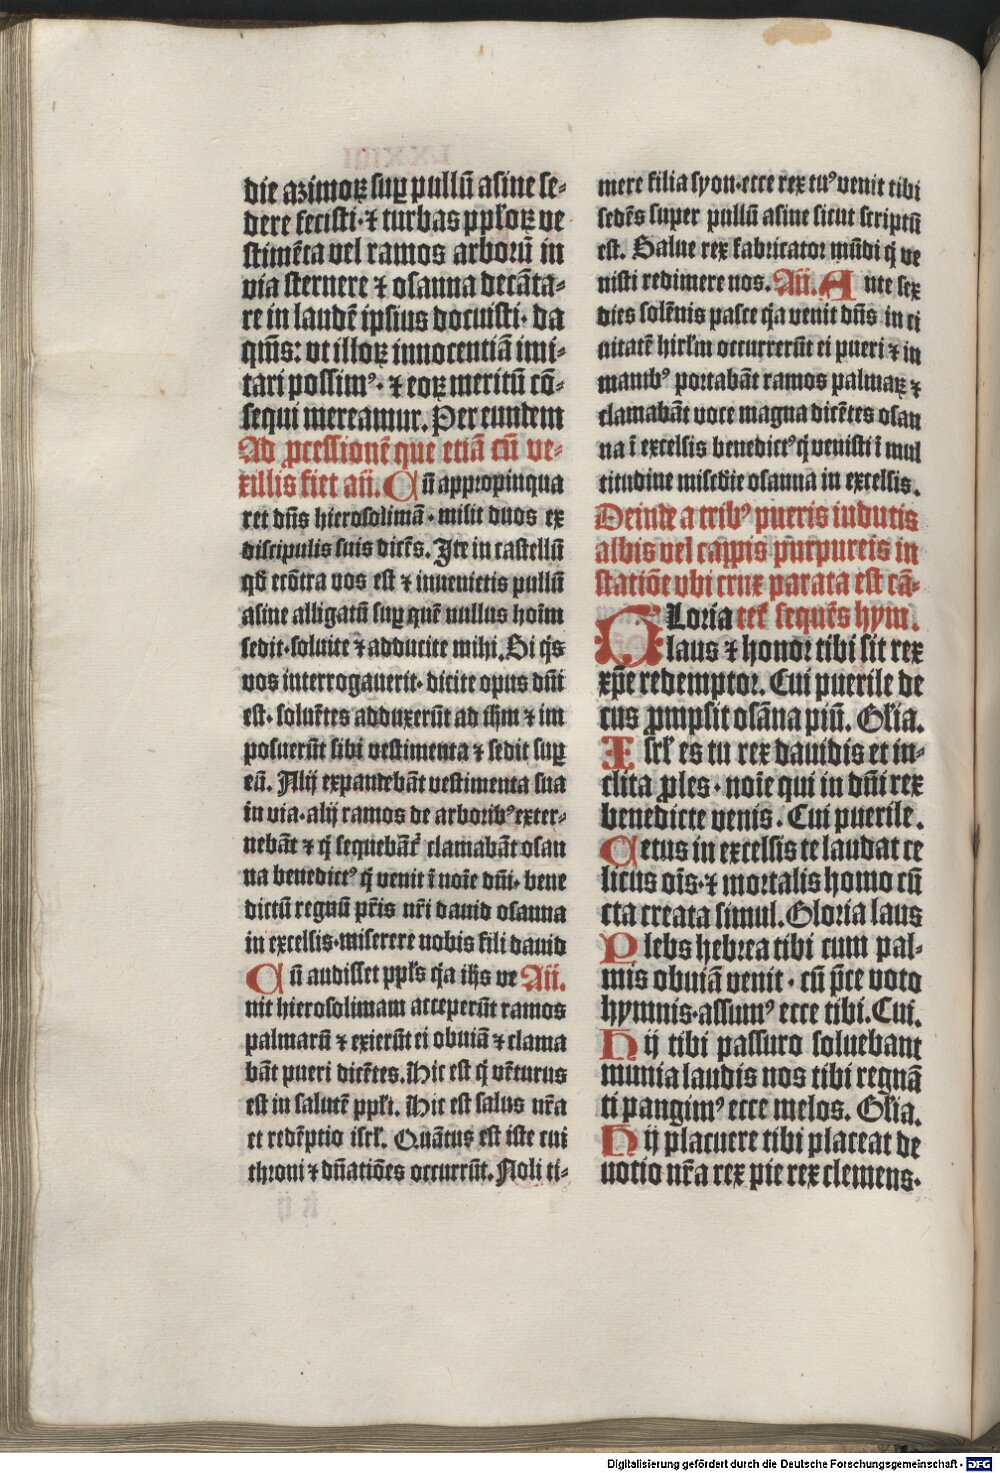 die azimoꝝ suꝑ pullū asine se-
dere fecisti · ⁊ turbas ppl'oꝝ ve
stimēta vel ramos arborū in
via sternere ⁊ osanna decāta-
re in laudē ipsius docuisti · da
qm̄s: vt illoꝝ innocentiā imi-
tari possimꝰ · ⁊ eoꝝ meritū cō-
sequi mereamur. Per eundem
Ad ꝓcessionē que etiā cū ve-
xillis fiet añ. Cū appropinqua
ret dn̄s hierosolimā · misit duos ex
discipulis suis dicēs. Ite in castellū
qd̄ ecōtra vos est ⁊ inuenietis pullū
asine alligatū suꝑ quē nullus hoīm
sedit · soluite ⁊ adducite mihi. Si q̄s
vos interrogauerit · dicite opus dn̄i
est · soluētes adduxerūt ad ihm̄ ⁊ im
posuerūt sibi vestimenta ⁊ sedit suꝑ
eū. Alij expandebāt vestimenta sua
in via · alij ramos de arboribꝰ exter-
nebāt ⁊ q̄ sequebāt᷑ clamabāt osan
na benedictꝰ q̄ venit ī noīe dn̄i · bene
dictū regnū pr̄is nr̄i dauid osanna
in excelsis · miserere nobis fili dauid
Cū audisset ppl's q̄a ihs ve Añ.
nit hierosolimam acceperūt ramos
palmarū ⁊ exierūt ei obuiā ⁊ clama
bāt pueri dicētes. Hic est q̄ vēturus
est in salutē ppl'i. Hic est salus nr̄a
et redēptio isrl'. Quātus est iste cui
throni ⁊ dn̄atiōes occurrūt. Noli ti-
mere filia syon · ecce rex tuꝰ venit tibi
sedēs super pullū asine sicut scriptū
est. Salue rex fabricator mūdi q̄ ve
nisti redimere nos. Añ. Ante sex
dies solēnis pasce q̄a venit dn̄s in ci
uitatē hirl'm occurrerūt ei pueri ⁊ in
manibꝰ portabāt ramos palmaꝝ ⁊
clamabāt voce magna dicētes osan
na ī excelsis benedictꝰ q̄ venisti ī mul
titudine misēdie osanna in excelsis.
Deinde a tribꝰ pueris indutis
albis vel cappis purpureis in
statiōe vbi crux parata est cā-
GLoria tet᷑ sequēs hym.
laus ⁊ honor tibi sit rex
xp̄e redemptor. Cui puerile de
cus ꝓmpsit osāna piū. Gl'ia.
Isrl' es tu rex dauidis et in-
clita ꝓles · noīe qui in dn̄i rex
benedicte venis. Cui puerile.
Cetus in excelsis te laudat ce
licus oīs · ⁊ mortalis homo cū
cta creata simul. Gloria laus
Plebs hebrea tibi cum pal-
mis obuiā venit · cū p̄ce voto
hymnis · assumꝰ ecce tibi. Cui.
Hij tibi passuro soluebant
munia laudis nos tibi regnā
ti pangimꝰ ecce melos. Gl'ia.
Hij placuere tibi placeat de
uotio nr̄a rex pie rex clemens.
Digitalisierung gefördert durch die Deutsche Forschungsgemeinschaft - DFG